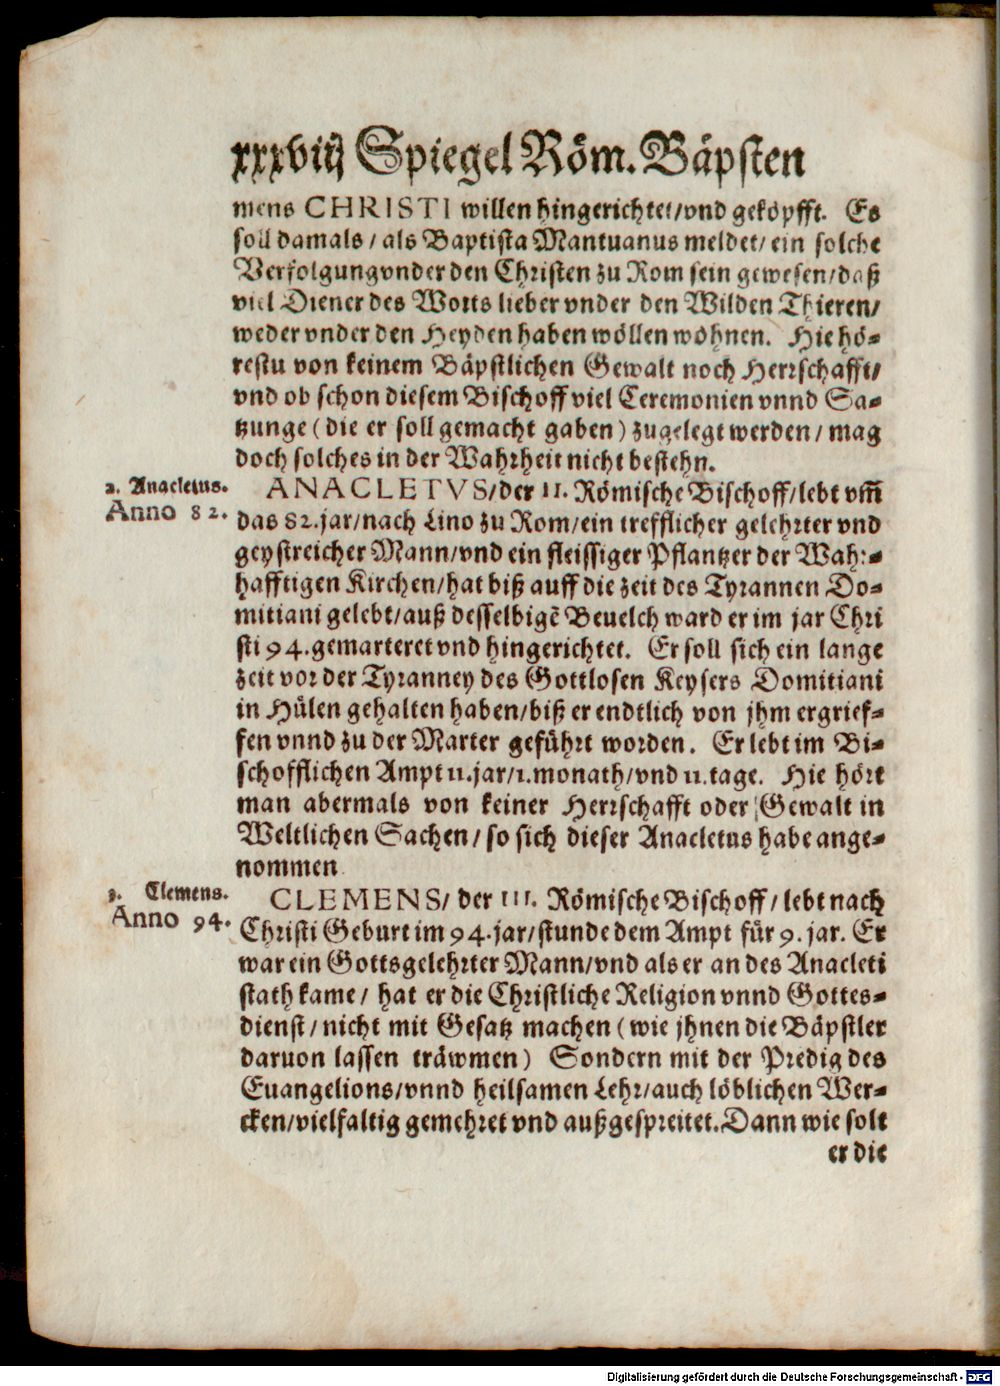 xxxviij Spiegel Röm. Bäpsten
mens CHRISTI willen hingerichtet/vnd geköpfft. Es
soll damals/als Baptista Mantuanus meldet/ein solche
Verfolgung vnder den Christen zu Rom sein gewesen/daß
viel Diener des Worts lieber vnder den Wilden Thieren/
weder vnder den Heyden haben wöllen wohnen. Hie hö-
restu von keinem Bäpstlichen Gewalt noch Herrschafft/
vnd ob schon diesem Bischoff viel Ceremonien vnnd Sa-
tzunge (die er soll gemacht gaben) zugelegt werden/mag
doch solches in der Wahrheit nicht bestehn.
2. Anacletus.
Anno 82.
ANACLETVS/der II. Römische Bischoff/lebt vm̃
das 82.jar/nach Lino zu Rom/ein trefflicher gelehrter vnd
geystreicher Mann/vnd ein fleissiger Pflantzer der Wahr-
hafftigen Kirchen/hat biß auff die zeit des Tyrannen Do-
mitiani gelebt/auß desselbigẽ Beuelch ward er im jar Chri
sti 94.gemarteret vnd hingerichtet. Er soll sich ein lange
zeit vor der Tyranney des Gottlosen Keysers Domitiani
in Hülen gehalten haben/biß er endtlich von jhm ergrief-
fen vnnd zu der Marter geführt worden. Er lebt im Bi-
schofflichen Ampt 11.jar/1.monath/vnd 11.tage. Hie hört
man abermals von keiner Herrschafft oder Gewalt in
Weltlichen Sachen/so sich dieser Anacletus habe ange-
nommen
3. Clemens.
Anno 94.
CLEMENS/der III. Römische Bischoff/lebt nach
Christi Geburt im 94.jar/stunde dem Ampt für 9.jar. Er
war ein Gottsgelehrter Mann/vnd als er an des Anacleti
stath kame/hat er die Christliche Religion vnnd Gottes-
dienst/nicht mit Gesatz machen (wie jhnen die Bäpstler
daruon lassen träwmen) Sondern mit der Predig des
Euangelions/vnnd heilsamen Lehr/auch löblichen Wer-
cken/vielfaltig gemehret vnd außgespreitet. Dann wie solt
er die
Digitalisierung gefördert durch die Deutsche Forschungsgemeinschaft - DFG